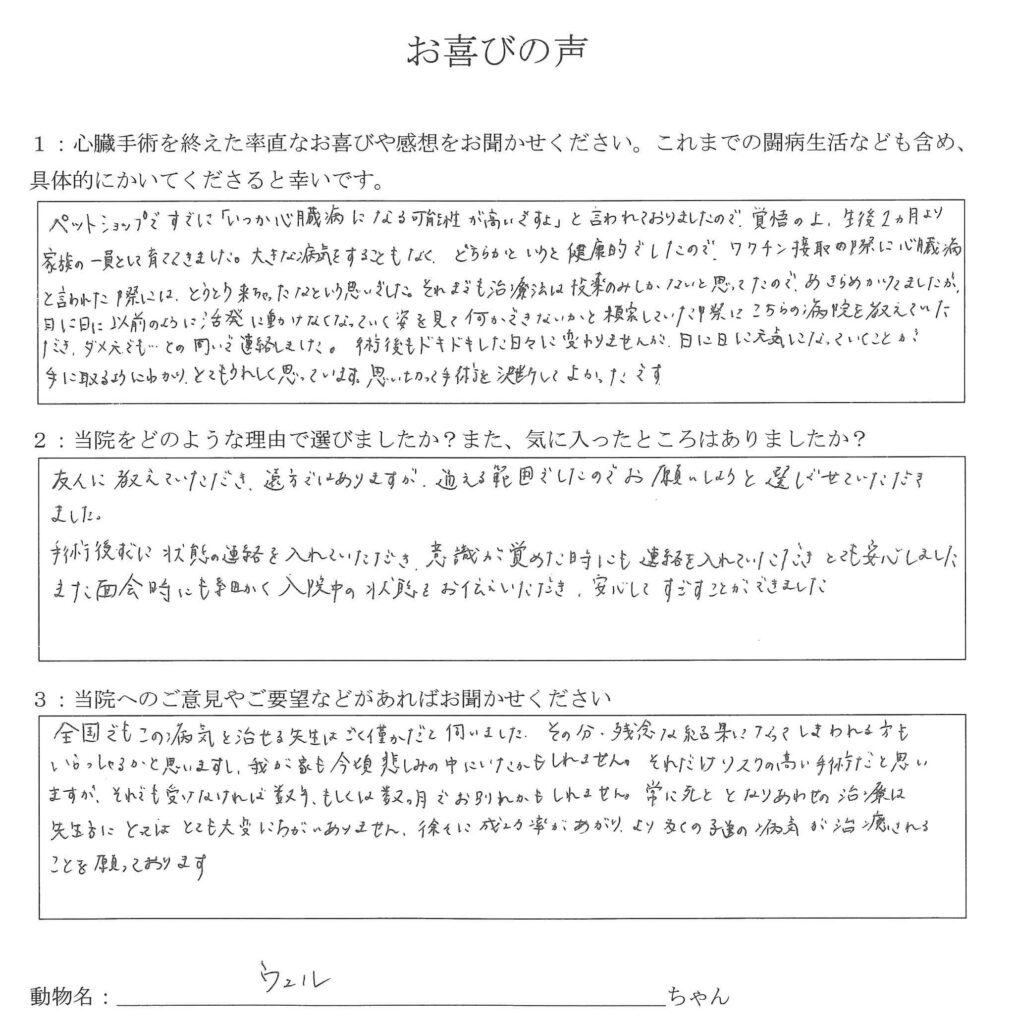 お喜びの声
１：心臓手術を終えた率直なお喜びや感想をお聞かせください。これまでの闘病生活なども含め、
具体的にかいてくださると幸いです。
ペットショップですでに「いつか心臓病になる可能性が高いですよ」と言われておりましたので、覚悟の上、生後2ヵ月より
家族の一員として育ててきました。大きな病気をすることもなく、どちらかというと健康的でしたので、ワクチン接取の際に心臓病
と言われた際には、とうとう来ちゃったなという思いでした。それまでも治療法は投薬のみしかないと思ってたので、あきらめかけてましたが、
日に日に以前のように活発に動けなくなっていく姿を見て何かできないかと模索していた際にこちらの病院を教えていた
だき、ダメ元でも…との思いで連絡しました。術後もドキドキした日々に変わりませんが、日に日に元気になっていくことが
手に取るようにわかり、とてもうれしく思っています。思い切って手術を決断してよかったです
２：当院をどのような理由で選びましたか？また、気に入ったところはありましたか？
友人に教えていただき、遠方ではありますが、通える範囲でしたのでお願いしようと選ばせていただき
ました。
手術後すぐに状態の連絡を入れていただき、意識が覚めた時にも連絡を入れていただきとても安心しました
また面会時にも細かく入院中の状態をお伝えいただき、安心してすごすことができました
３：当院へのご意見やご要望などがあればお聞かせください
全国でもこの病気を治せる先生はごく僅かだと伺いました。その分、残念な結果になってしまわれる方も
いらっしゃるかと思いますし、我が家も今頃悲しみの中にいたかもしれません。それだけリスクの高い手術だと思い
ますが、それでも受けなければ数年、もしくは数ヶ月でお別れかもしれません。常に死ととなりあわせの治療は
先生方にとってはとても大変にちがいありません、徐々に成功率があがり、より多くの子達の病気が治癒される
ことを願っております
動物名：ウェルちゃん